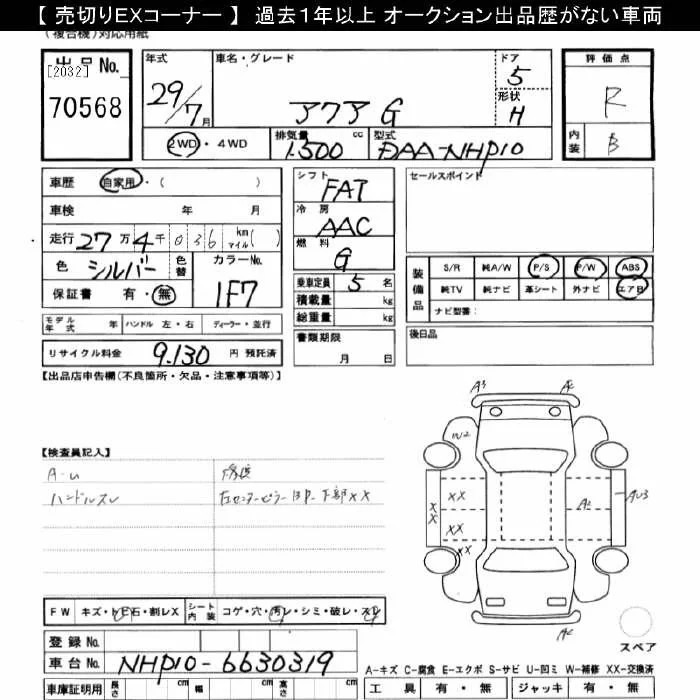 【 売切りEXコーナー 】 過去1年以上 オークション出品歴がない車両
(複合機)対応用紙
出品No.
[2032]
70568
年式
29/7月
車名・グレード
アクア G
ドア
5
形状
H
評価点
R
内装
B
2WD・4WD
排気量 cc
1.500
型式
DAA-NHP10
車歴 自家用・( )
車検 年 月
走行 27万4千036 km マイル( )
色 シルバー 色替
カラーNo.
1F7
保証書 有・無
モデル年式 年 ハンドル 左・右 ディーラー・並行
リサイクル料金 9.130 円 預託済
シフト
FAT
冷房
AAC
燃料
G
乗車定員 5 名
積載量 kg
総重量 kg
書類期限
月 日
セールスポイント
装備品
S/R 純A/W P/S P/W ABS
純TV 純ナビ 革シート 外ナビ エアB
ナビ型番:
後日品
【出品店申告欄(不良箇所・欠品・注意事項等)】
【検査員記入】
A-U
ハンドルスレ
修復
右センターピラーBP.下部××
A3
A2
W2
××
××
××
××
A2
AU3
A2
スペア
FW キズ・トビ石・割レX
シート内装 コゲ・穴・汚レ・シミ・破レ・スレ
登録No.
車台No. NHP10-6630319
車庫証明用 長さ cm 幅 cm 高さ cm
A-キズ C-腐食 E-エクボ S-サビ U-凹ミ W-補修 XX-交換済
工具 有・無 ジャッキ 有・無